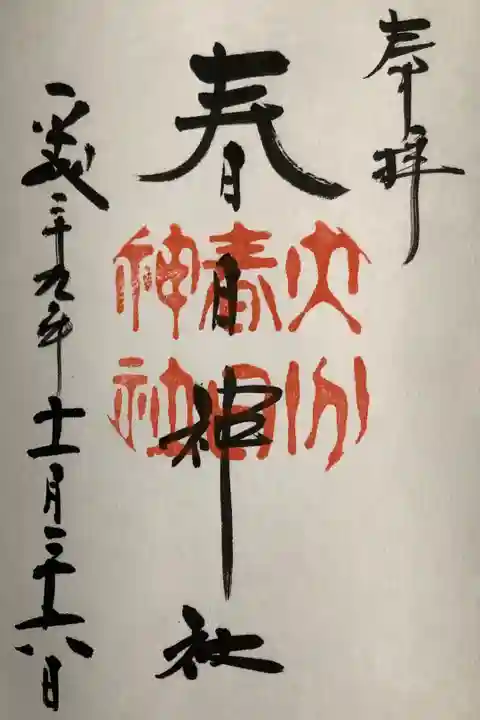 奉拝
春日神社
大分
春日
神社
平成二十九年十一月二十八日